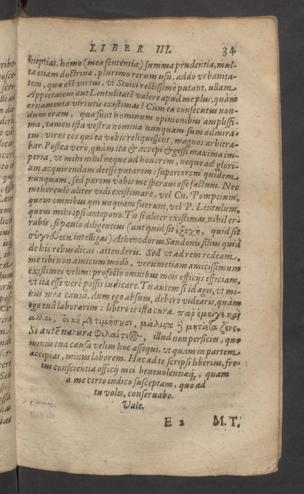 LIBER III. 34
ineptias. homo (mea sententia) summa prudentia, mul-
ta etiam doctrina, plurimo rerum usu, addo urbanita-
tem, quae est virtus, ut Stoici rectissimè putant, ullam
Appietatem aut Lentulitatē valere apud me plus, quàm
ornamenta virtutis existimas? Cum ea consecutus non-
dum eram, quae sunt hominum opinionibus amplissi-
ma, tamen ista vestra nomina nunquam sum admira-
tus: viros eos qui ea vobis reliquissent, magnos arbitra-
bar. Postea verò, quàm ita & accepi & gessi maxima im-
peria, ut mihi nihil neque ad honorem, neque ad glori-
am acquirendam deesse putarem: superiorem quidem
nunquam, sed parem vobis me speraui esse factum. Nec
mehercule aliter vidi existimare, vel Cn. Pompeium,
quem omnibus qui unquam fuerunt, vel P. Lentulum,
quem mihi ipsi antepono. Tu si aliter existimas, nihil er-
rabis, si paulo diligentius (ant quid sit ἐξοχὴ, quid sit
intelligas) Athenodorus Sandonis filius quid
de his rebus dicat, attenderis. Sed ut ad rem redeam,
me tibi non amicum modò, verumetiam amicissimum
existimes velim: profectò omnibus meis officijs efficiam,
ut ita esse verè possis iudicare. Tu autem si id agis, ut mi-
nus mea causa, dum ego absum, debere videaris, quàm
ego tua laborarim: libero te ista cura.
illud non perficies, quo
minus tua causa velim hoc assequi, ut quam in partem
accipias, minus laborem. Haec ad te scripsi liberius, fre-
tus conscientia officij mei beneuolentiaeq;, quam
a me certo iudico susceptam, quoad
tu voles, conseruabo.
Vale.
E 2 M. T.